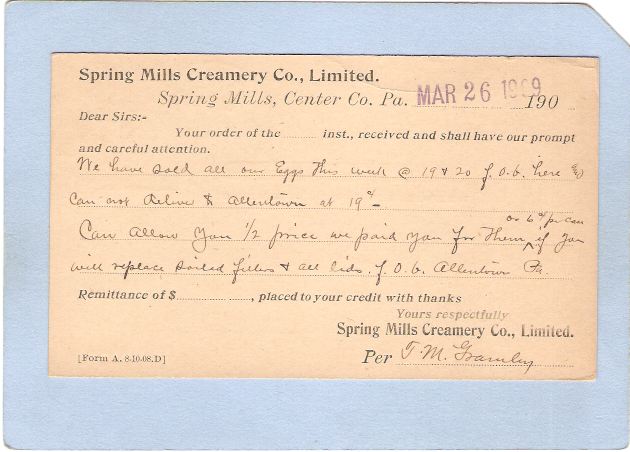 Spring Mills Creamery Co., Limited.
Spring Mills, Center Co. Pa. MAR 26 1909 190
Dear Sirs:-
Your order of the inst., received and shall have our prompt
and careful attention.
We have sold all our Eggs this week @ 19 & 20 f.o.b. here
Can not Deliver Allentown at 19¢ -
or 6¢ pr can
Can allow you 1/2 price we paid you for them, if you
will replace soiled fillers & all lids. f.O.b. Allentown Pa.
Remittance of $ , placed to your credit with thanks
Yours respectfully
Spring Mills Creamery Co., Limited.
[Form A. 8-10-08.D] Per T. M. Gramley